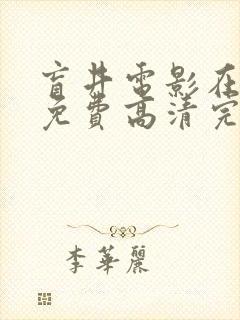 盲井电影在
免費高清完
李華麗